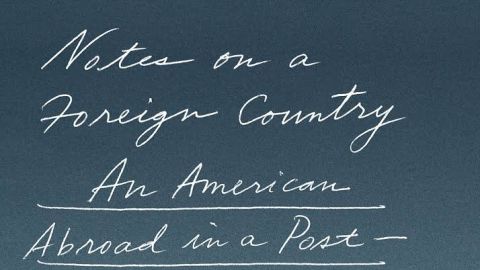 Notes on a
Foreign Country
An American
Abroad in a Post—